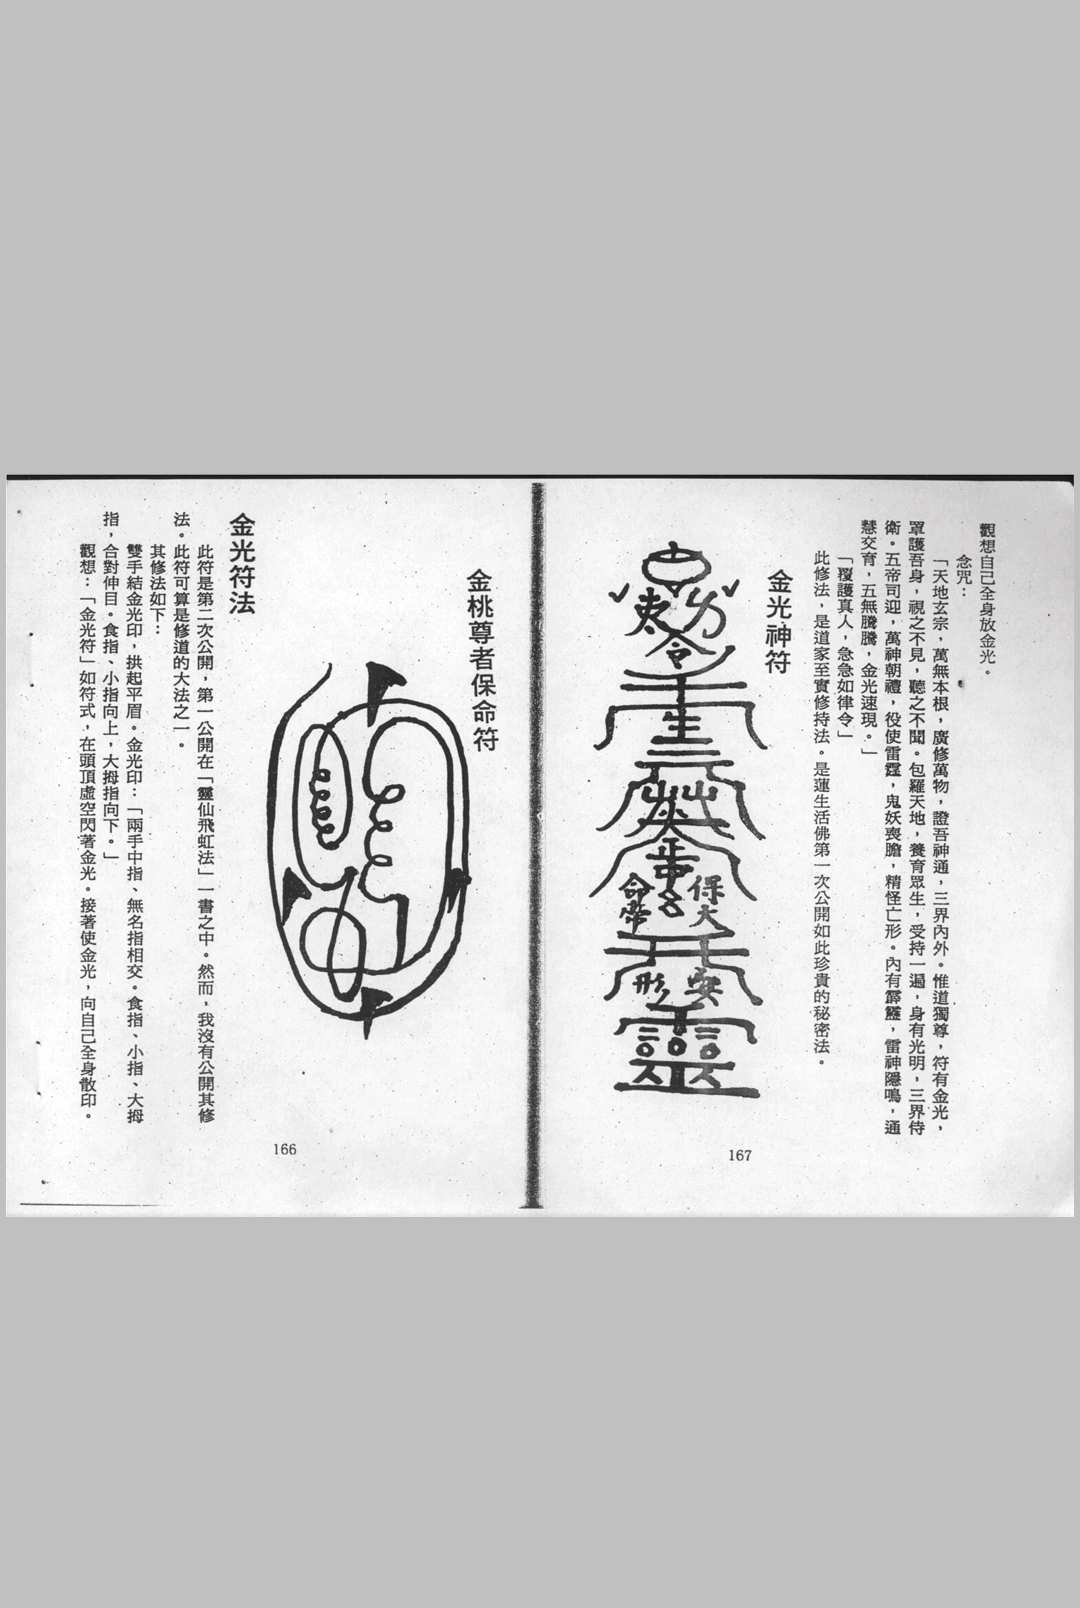 金桃尊者保命符
金光符法
此符是第二次公開，第一公開在「靈仙飛虹法」一書之中。然而，我沒有公開其修
法。此符可算是修道的大法之一。
其修法如下：
雙手結金光印，拱起平眉。金光印：「兩手中指、無名指相交。食指、小指、大拇
指，合對伸目。食指、小指向上，大拇指向下。」
觀想：「金光符」如符式，在頭頂虛空閃著金光。接著使金光，向自己全身散印。
166
觀想自己全身放金光。
念咒：
「天地玄宗，萬無本根，廣修萬物，證吾神通，三界內外。惟道獨尊，符有金光，
罩護吾身，視之不見，聽之不聞。包羅天地，養育眾生，受持一遍，身有光明，三界侍
衛。五帝司迎，萬神朝禮，役使雷霆，鬼妖喪膽，精怪亡形。內有霹靂，雷神隱鳴，通
慧交育，五無騰騰，金光速現。」
「覆護真人，急急如律令」
此修法，是道家至實修持法。是蓮生活佛第一次公開如此珍貴的秘密法。
金光神符
令
生
保大
命帝
安
形
167